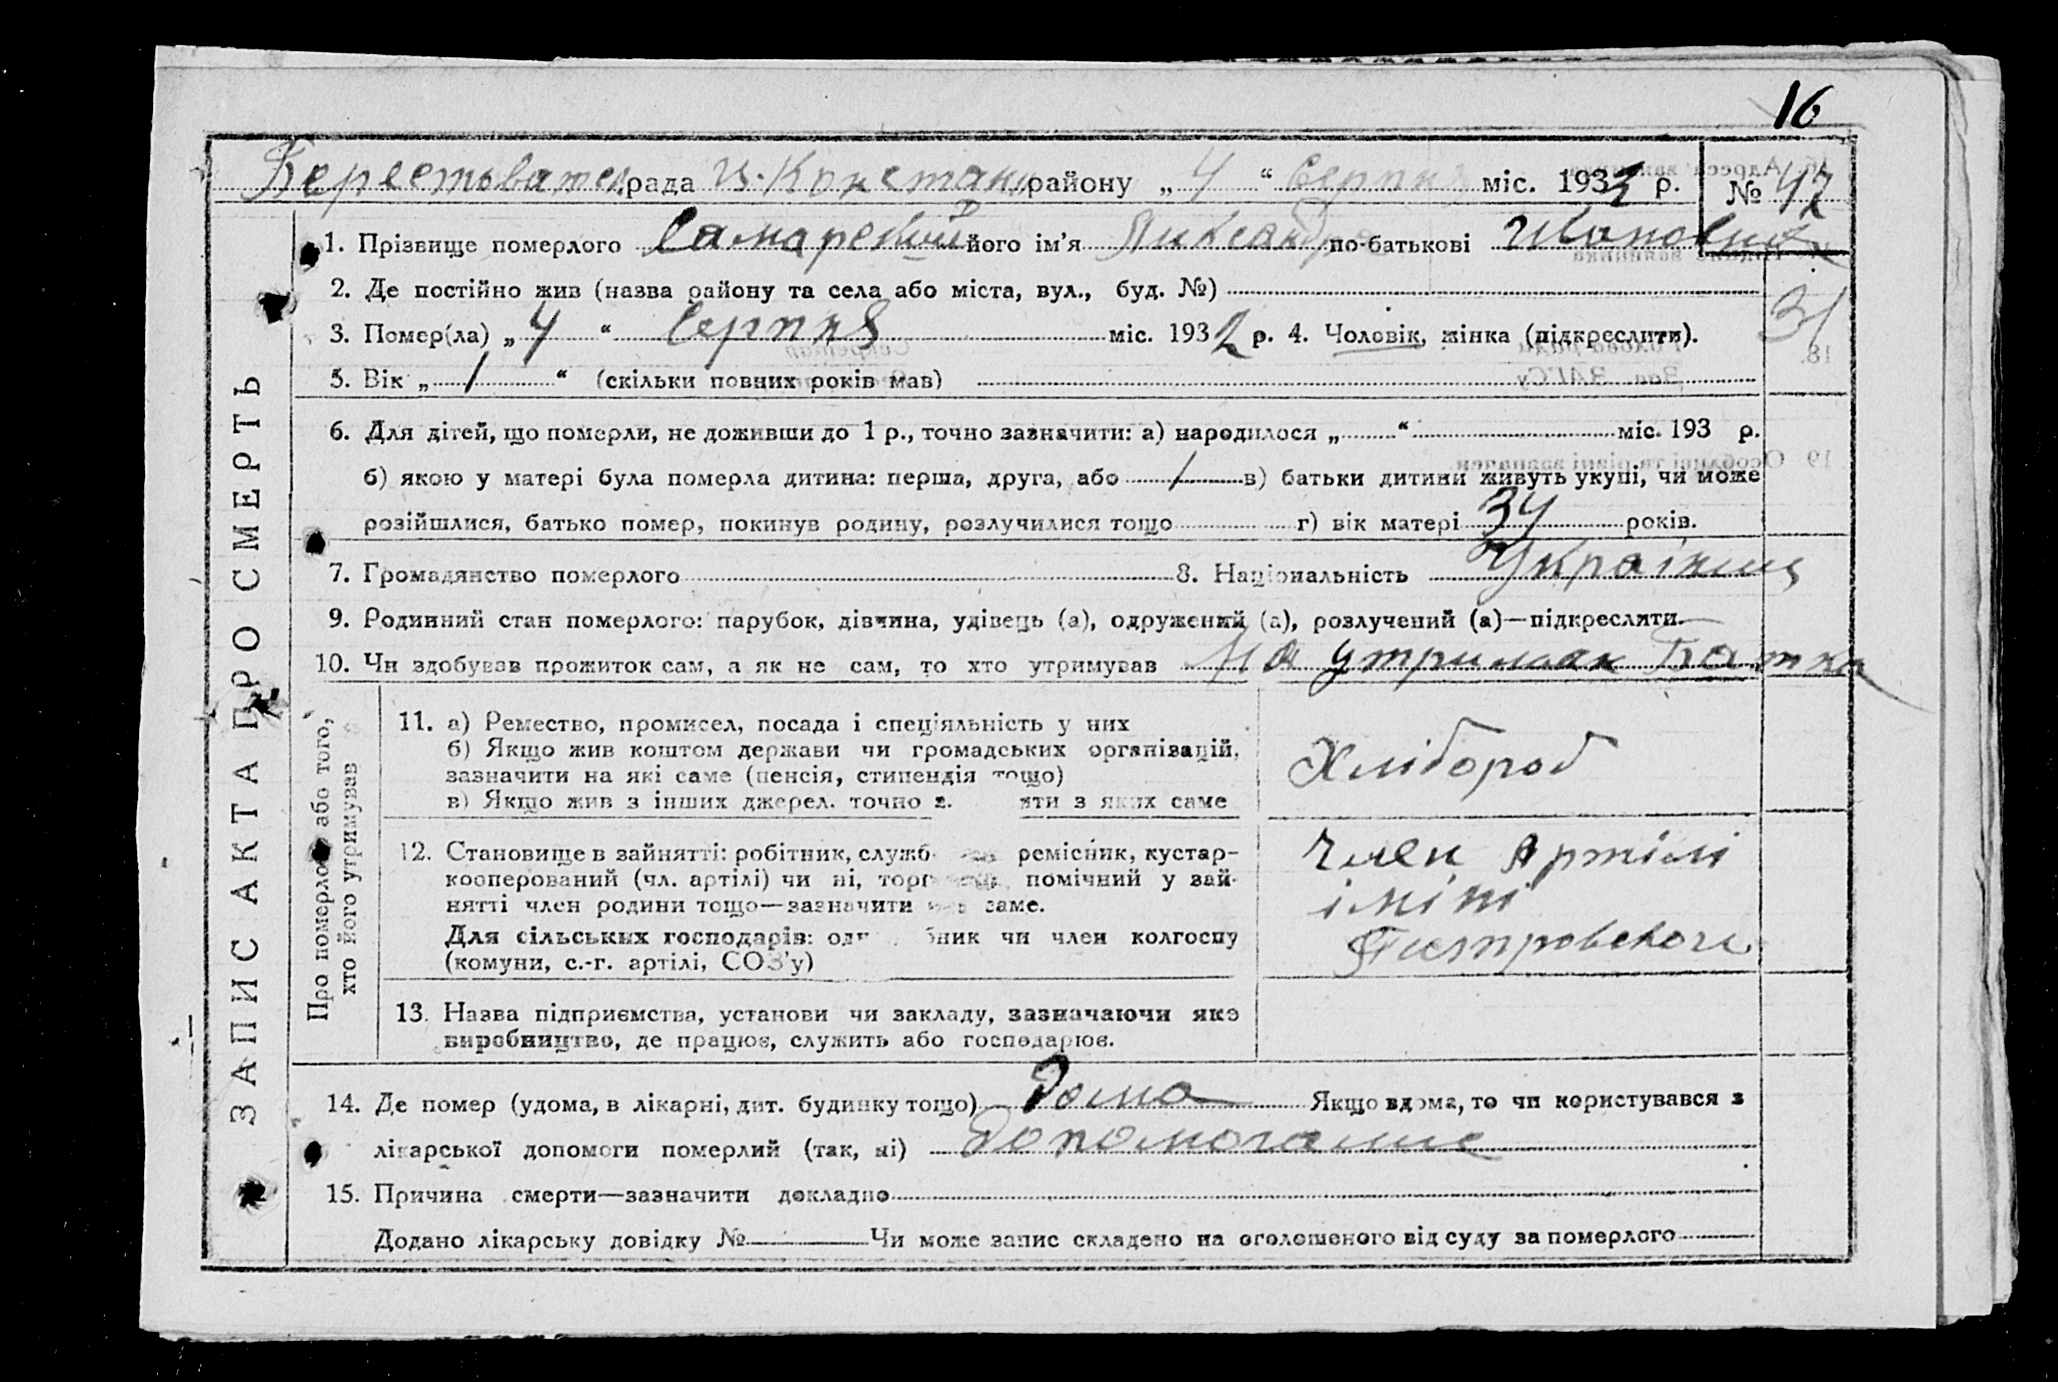 16
Берестоватск рада Ц. Констан району „ 4 “ Серпня міс. 1933 р. № 42
1. Прізвище померлого Самарский його ім'я Александр по-батькові Иванович
2. Де постійно жив (назва району та села або міста, вул., буд. №)
3. Помер(ла) „ 4 “ Серпня міс. 1932 р. 4. Чоловік, жінка (підкреслити). 31
5. Вік „ 1 “ (скільки повних років мав)
6. Для дітей, що померли, не доживши до 1 р., точно зазначити: а) народилося „ “ міс. 193 р.
б) якою у матері була померла дитина: перша, друга, або 1 в) батьки дитини живуть укупі, чи може
розійшлися, батько помер, покинув родину, розлучилися тощо г) вік матері 34 років.
7. Громадянство померлого 8. Національність Українець
9. Родинний стан померлого: парубок, дівчина, удівець (а), одружений (а), розлучений (а)—підкреслити.
10. Чи здобував прожиток сам, а як не сам, то хто утримував На утриман Батка
ЗАПИС АКТА ПРО СМЕРТЬ
Про померлого або того,
хто його утримував
11. а) Ремество, промисел, посада і спеціяльність у них
б) Якщо жив коштом держави чи громадських організацій,
зазначити на які саме (пенсія, стипендія тощо)
в) Якщо жив з інших джерел. точно з. яти з яких саме
Хлібороб
12. Становище в зайнятті: робітник, служб ремісник, кустар-
кооперований (чл. артілі) чи ні, торг помічний у зай-
нятті член родини тощо—зазначити саме.
Для сільських господарів: од бник чи член колгоспу
(комуни, с.-г. артілі, СОЗ'у)
Член Артілі
іміні
Питровского
13. Назва підприємства, установи чи закладу, зазначаючи яке
виробництво, де працює, служить або господарює.
14. Де помер (удома, в лікарні, дит. будинку тощо) Дома Якщо вдома, то чи користувався з
лікарської допомоги померлий (так, ні)
15. Причина смерти—зазначити докладно
Додано лікарську довідку № Чи може запис складено на оголошеного від суду за померлого